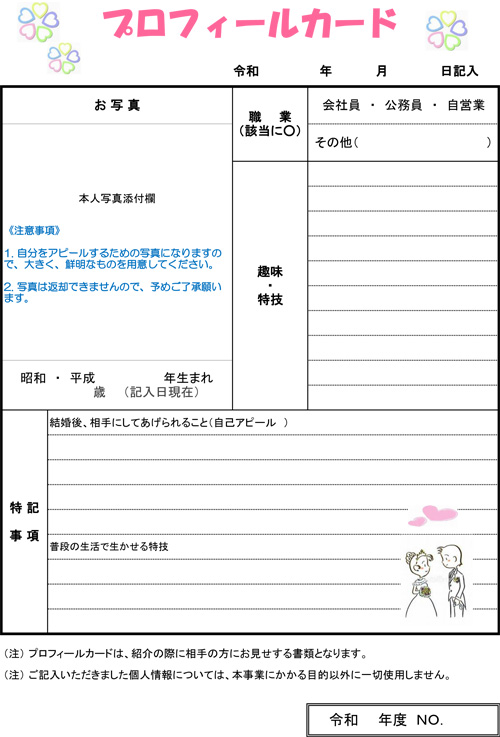 プロフィールカード
令和　　　年　　　月　　　日記入
お 写 真
本人写真添付欄
《注意事項》
1. 自分をアピールするための写真になりますの
で、大きく、鮮明なものを用意してください。
2. 写真は返却できませんので、予めご了承願い
ます。
昭和 ・ 平成　　　　　年生まれ
歳　（記入日現在）
職　業
（該当に〇）
会社員 ・ 公務員 ・ 自営業
その他（　　　　　　　　　　）
趣味
・
特技
特 記
事 項
結婚後、相手にしてあげられること（自己アピール　）
普段の生活で生かせる特技
（注） プロフィールカードは、紹介の際に相手の方にお見せする書類となります。
（注） ご記入いただきました個人情報については、本事業にかかる目的以外に一切使用しません。
令和　　年度 NO.